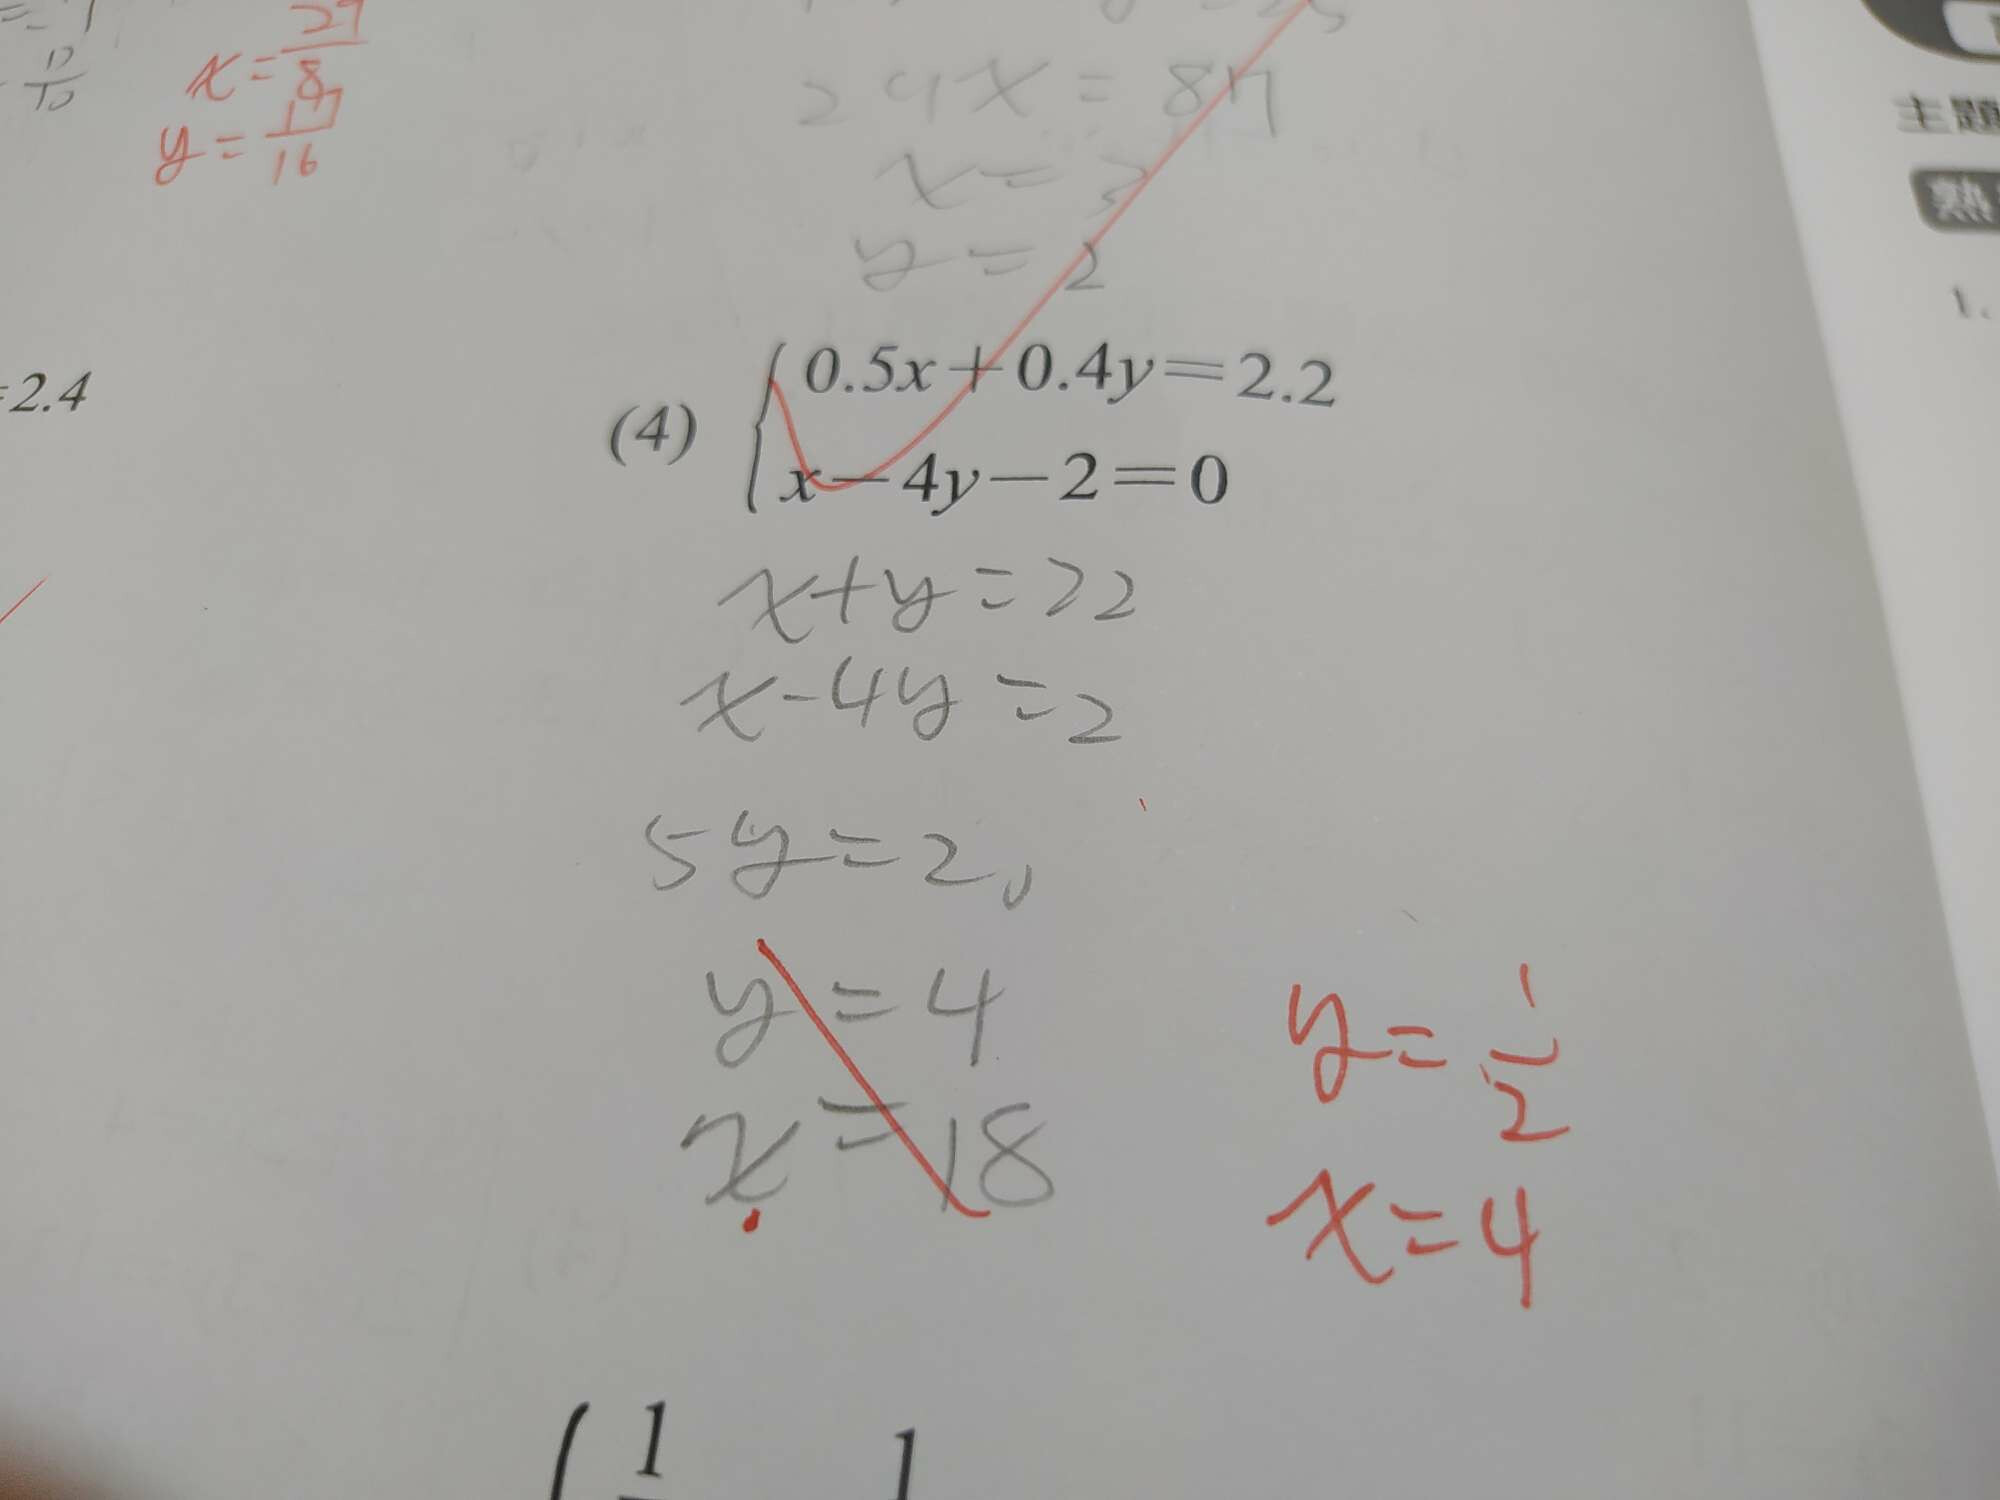 x=29/8
y=17/16
24x=87
x=3
y=2
主題
熟
1.
=2.4
(4) 0.5x+0.4y=2.2
x-4y-2=0
x+y=22
x-4y=2
5y=20
y=4
x=18
y=1/2
x=4
1 1